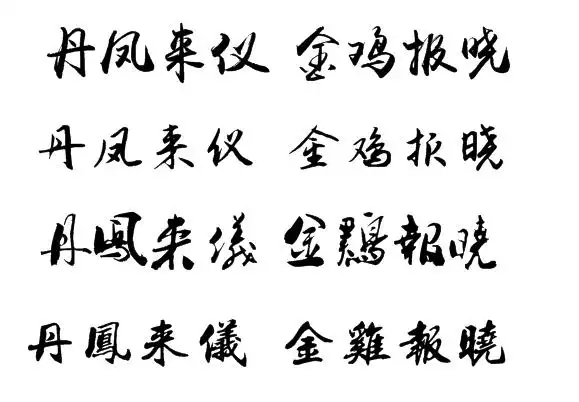 丹凤来仪 金鸡报晓
丹凤来仪 金鸡报晓
丹鳳来儀 金鷄報曉
丹鳳来儀 金雞報曉